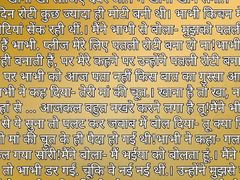 दिन रोटी कुछ ज्यादा ही मोटी बनी थी। भाभी किचन में
टियां सेंक रही थीं। मैंने भाभी से बोला- मुझको पतली
है भाभी, प्लीज मेरे लिए पतली रोटी बना दो ना।भाभी
ही बनाती है, पर मेरे कहने पर उन्होंने पतली रोटी
पर भाभी को आज पता नहीं किस बात का गुस्सा आ
ने कह दिया- तेरी मां की चूत। खाना है तो खा, न
हां से … आजकल बहुत नखरे करने लगा है तू!मैंने भी
से ये सुना तो पलट कर जवाब में बोल दिया- तू क्या
मां की चूत के ही पैदा हो गई थी!भाभी ने कहा- गल
कल गया सॉरी!मैंने बोला- मैं भईया को बोलता हूं।
तो भाभी डर गई, चूंकि वे नई नई थीं। उन्होंने मुझसे